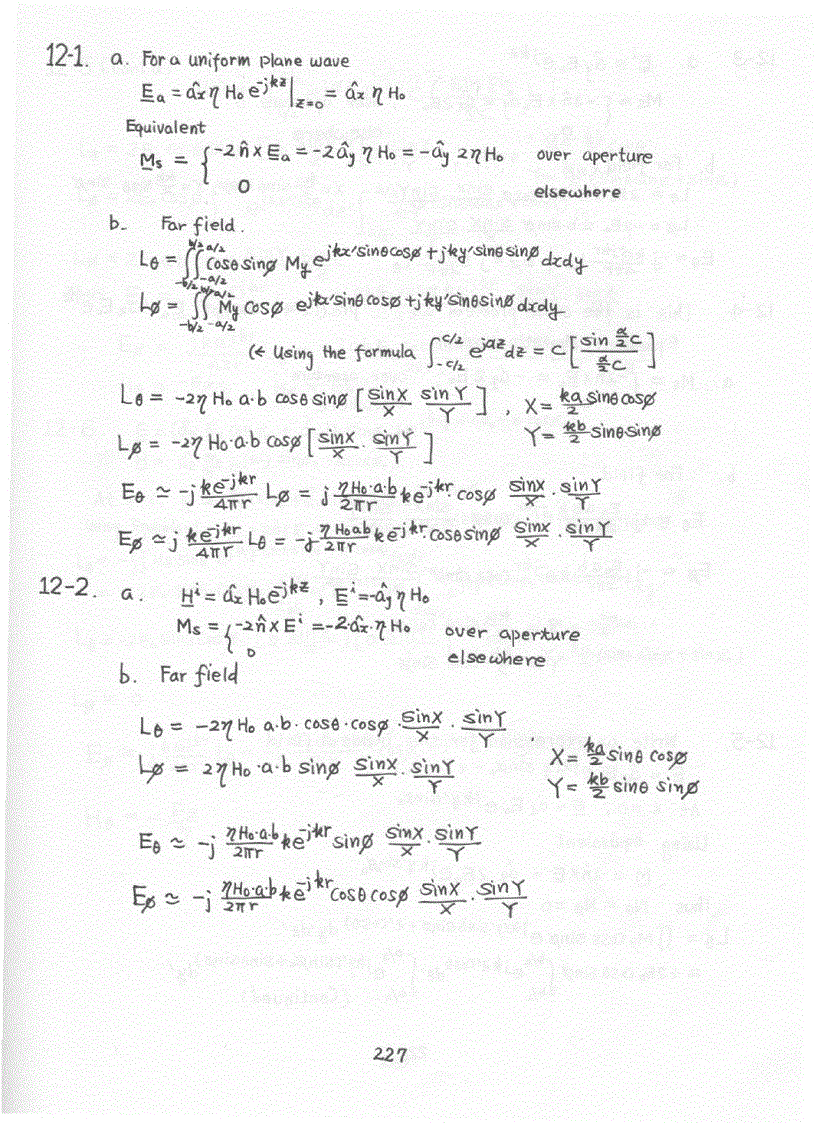 12-1. a. For a uniform plane wave
E̲a = âx η H₀ e^{-jkz}|_{z=0} = âx η H₀
Equivalent
M̲s = { -2 n̂ × E̲a = -2 ây η H₀ = -ây 2η H₀ over aperture
0 elsewhere
b. Far field.
Lθ = ∬_{-b/2 -a/2}^{b/2 a/2} cosθ sinø My e^{jkx' sinθ cosø + jky' sinθ sinø} dxdy
Lø = ∬_{-b/2 -a/2}^{b/2 a/2} My cosø e^{jkx' sinθ cosø + jky' sinθ sinø} dxdy
(← Using the formula ∫_{-c/2}^{c/2} e^{jαz} dz = c [ sin (α/2)c / (α/2)c ]
Lθ = -2η H₀ a·b cosθ sinø [ sinX/X sinY/Y ] , X = ka/2 sinθ cosø
Lø = -2η H₀·a·b cosø [ sinX/X · sinY/Y ] Y = kb/2 sinθ·sinø
Eθ ≃ -j ke^{-jkr}/4πr Lø = j ηH₀·a·b/2πr ke^{-jkr} cosø sinX/X · sinY/Y
Eø ≃ j ke^{-jkr}/4πr Lθ = -j ηH₀ab/2πr ke^{-jkr} cosθ sinø sinX/X · sinY/Y
12-2. a. H̲ⁱ = âx H₀ e^{-jkz} , E̲ⁱ = -ây η H₀
Ms = { -2n̂ × Eⁱ = -2·âx·η H₀ over aperture
0 elsewhere
b. Far field
Lθ = -2η H₀ a·b· cosθ·cosø · sinX/X · sinY/Y
Lø = 2η H₀ ·a·b sinø sinX/X · sinY/Y
X = ka/2 sinθ cosø
Y = kb/2 sinθ sinø
Eθ ≃ -j ηH₀·a·b/2πr ke^{-jkr} sinø sinX/X · sinY/Y
Eø ≃ -j ηH₀·a·b/2πr ke^{-jkr} cosθ cosø sinX/X · sinY/Y
227